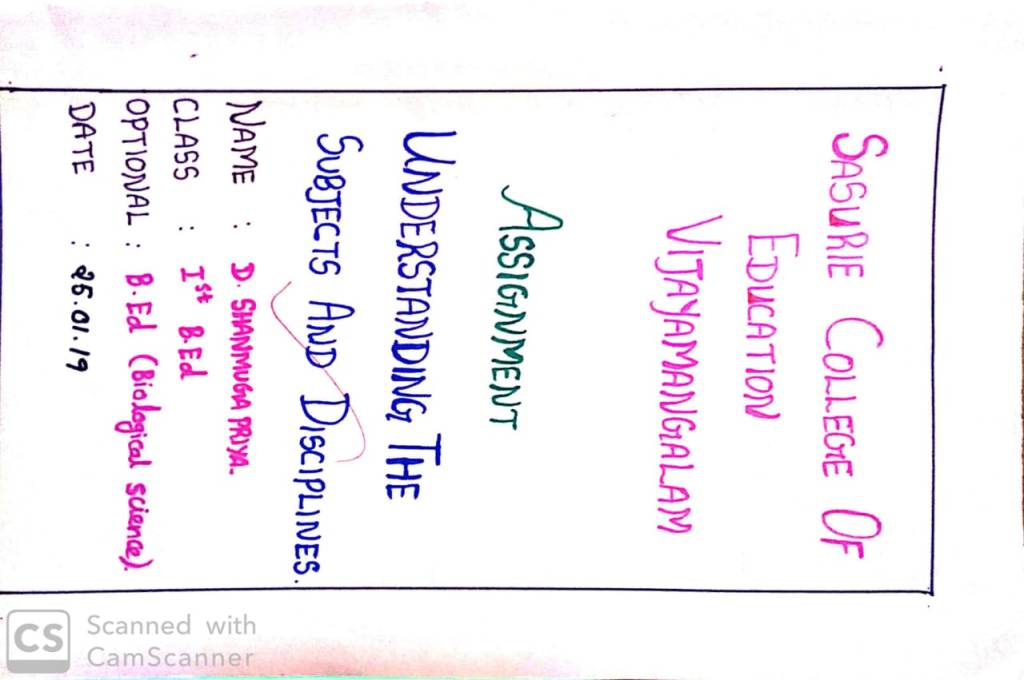 SASURIE COLLEGE OF
EDUCATION
VIJAYAMANGALAM
ASSIGNMENT
UNDERSTANDING THE
SUBJECTS AND DISCIPLINES.
NAME : D. SHANMUGA PRIYA.
CLASS : Ist B.Ed
OPTIONAL : B.Ed (Biological science).
DATE : 25.01.19
CS Scanned with
CamScanner